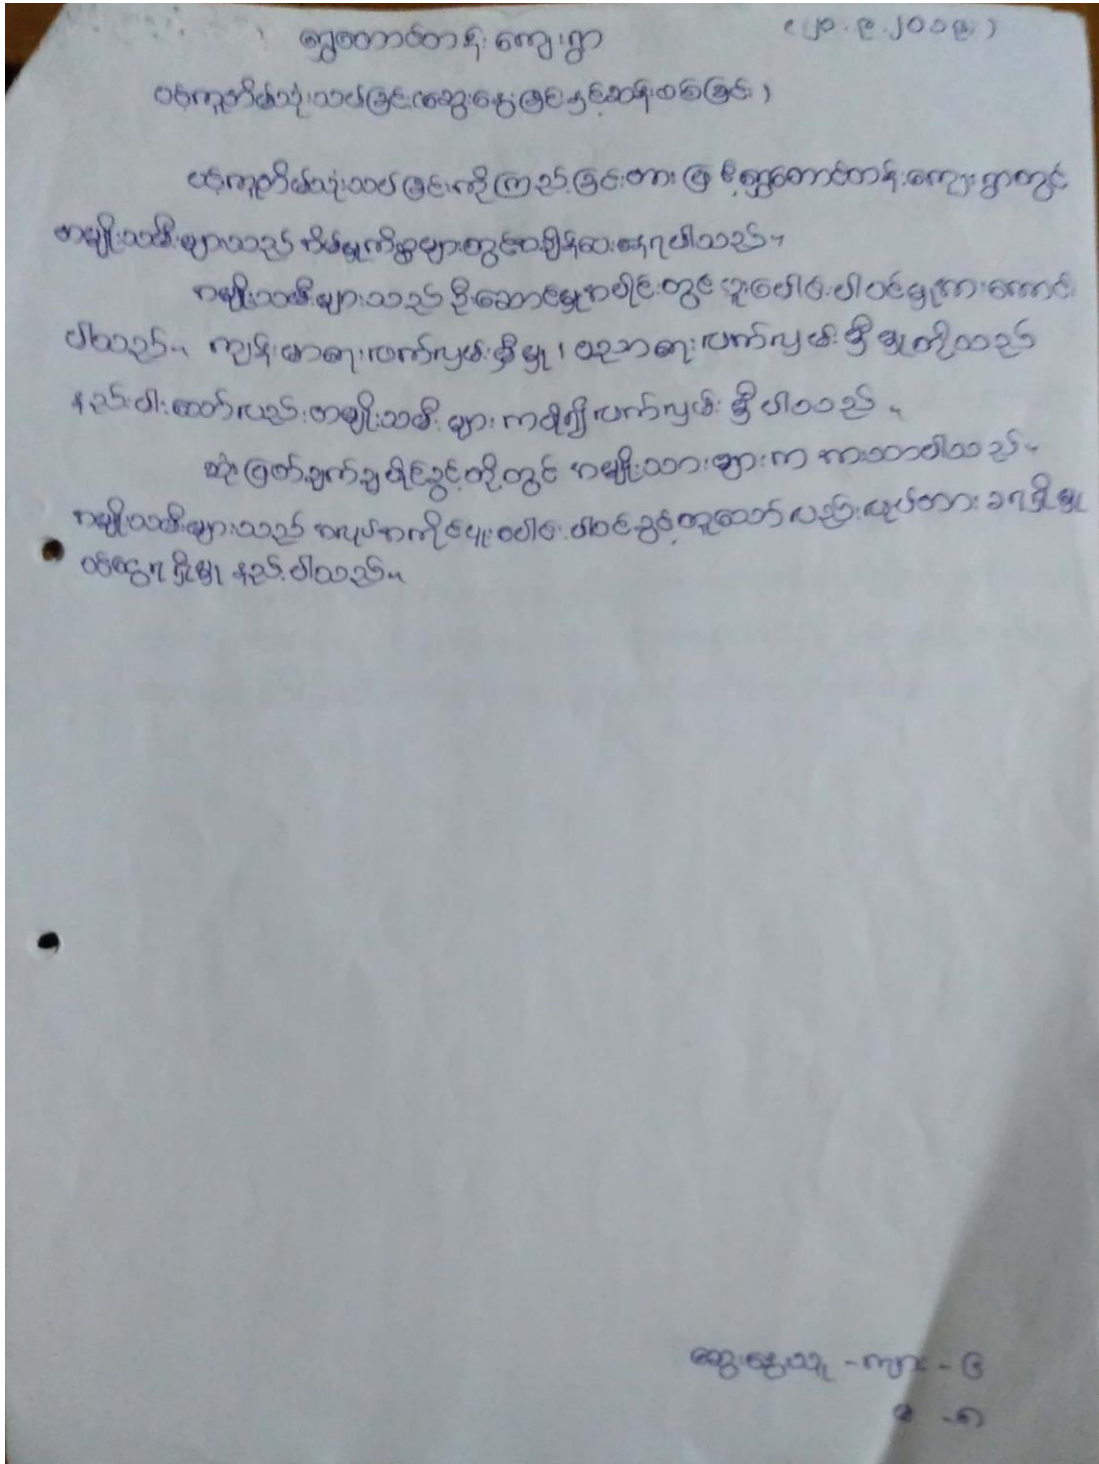 ရွှေတောင်တန်းကျေးရွာ (၂၀.၉.၂၀၁၉)
ပင့်ကူအိမ်သုံးသပ်ခြင်း(ဆွေးနွေးခြင်းနှင့်ဆန်းစစ်ခြင်း)
ပင့်ကူအိမ်သုံးသပ်ခြင်းကိုကြည့်ခြင်းအားဖြင့်ရွှေတောင်တန်းကျေးရွာတွင်
အမျိုးသမီးများသည်အိမ်မှုကိစ္စများတွင်အချိန်ပေးနေရပါသည်။
အမျိုးသမီးများသည်ဦးဆောင်မှုအပိုင်းတွင်ပူးပေါင်းပါဝင်မှုအားကောင်း
ပါသည်။ ကျန်းမာရေးလက်လှမ်းမှီမှု၊ ပညာရေးလက်လှမ်းမှီမှုတို့သည်
နည်းပါးသော်လည်းအမျိုးသမီးများကပို၍လက်လှမ်းမှီပါသည်။
ဆုံးဖြတ်ချက်ချပိုင်ခွင့်တို့တွင် အမျိုးသားများက အားသာပါသည်။
အမျိုးသမီးများသည် အလုပ်အကိုင်ပူးပေါင်းပါဝင်ခွင့်တူသော်လည်းလုပ်အားခရရှိမှု
ဝင်ငွေရရှိမှု နည်းပါသည်။
ဆွေးနွေးသူ - ကျား - ၆
မ - ၅